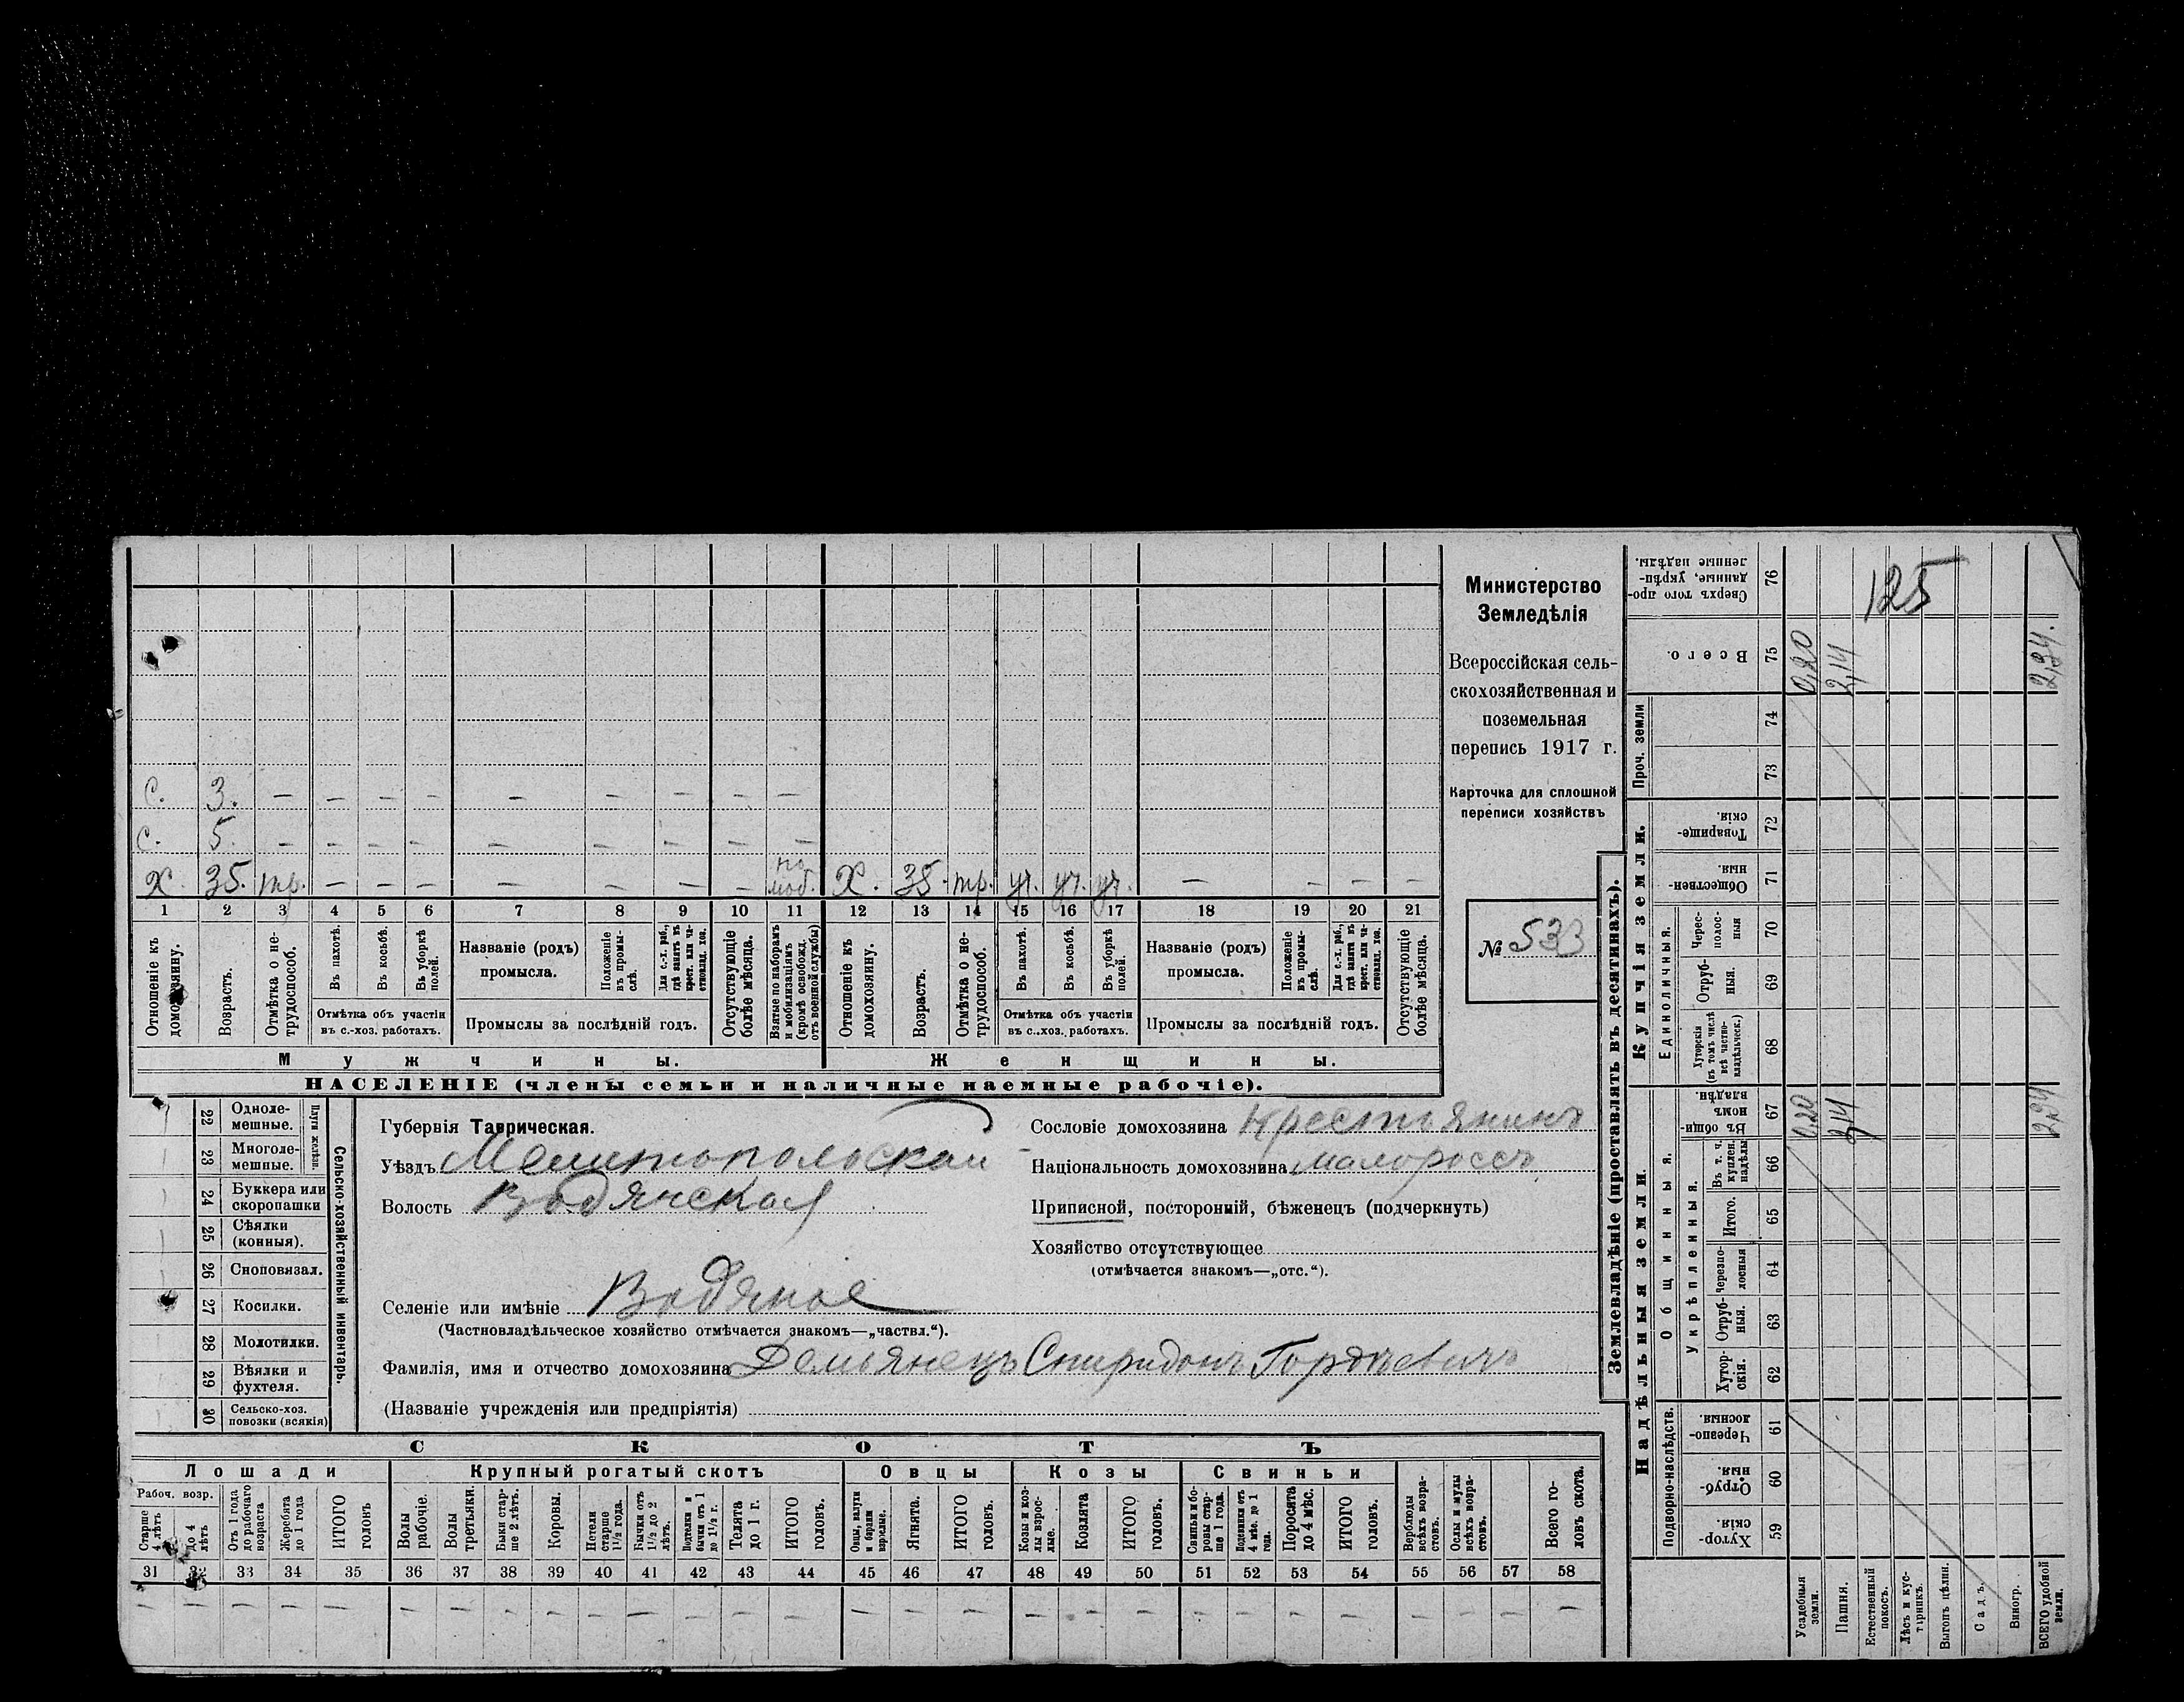 С. 3. — — — — — — — — —
С. 5. — — — — — — — — —
Х. 35. тр. — — — — — — — по моб. Х. 35. тр. уч. уч. уч. — — — —
1 2 3 4 5 6 7 8 9 10 11 12 13 14 15 16 17 18 19 20 21
Отношеніе къ домохозяину.
Возрастъ.
Отмѣтка о не-трудоспособ.
Въ пахотѣ.
Въ косьбѣ.
Въ уборкѣ полей.
Отмѣтка объ участіи
въ с.-хоз. работахъ.
Названіе (родъ)
промысла.
Положеніе въ промы-слѣ.
Для с.-х. раб., гдѣ занятъ въ крест. или ча-стновлад. хоз.
Промыслы за послѣдній годъ.
Отсутствующіе болѣе мѣсяца.
Взятые по наборамъ и мобилизаціямъ (кромѣ освобожд. отъ военной службы)
Отношеніе къ домохозяину.
Возрастъ.
Отмѣтка о не-трудоспособ.
Въ пахотѣ.
Въ косьбѣ.
Въ уборкѣ полей.
Отмѣтка объ участіи
въ с.-хоз. работахъ.
Названіе (родъ)
промысла.
Положеніе въ промы-слѣ.
Для с.-х. раб., гдѣ занятъ въ крест. или ча-стновлад. хоз.
Промыслы за послѣдній годъ.
Отсутствующіе болѣе мѣсяца.
Мужчины.
Женщины.
НАСЕЛЕНІЕ (члены семьи и наличные наемные рабочіе).
Министерство
Земледѣлія
Всероссійская сель-
скохозяйственная и
поземельная
перепись 1917 г.
Карточка для сплошной
переписи хозяйствъ
№ 533
22 Одноле-мешные.
23 Многоле-мешные.
Плуги желѣзн.
24 Буккера или скоропашки
25 Сѣялки (конныя).
26 Сноповязал.
27 Косилки.
28 Молотилки.
29 Вѣялки и фухтеля.
30 Сельско-хоз. повозки (всякія)
Сельско-хозяйственный инвентарь.
Губернія Таврическая.
Уѣздъ Мелитопольскій
Волость Водянская
Селеніе или имѣніе Водяное
(Частновладѣльческое хозяйство отмѣчается знакомъ—„частвл.“).
Фамилія, имя и отчество домохозяина Демьянецъ Спиридонъ Гордѣевичъ
(Названіе учрежденія или предпріятія)
Сословіе домохозяина Крестьянинъ
Національность домохозяина малороссъ
Приписной, посторонній, бѣженецъ (подчеркнуть)
Хозяйство отсутствующее
(отмѣчается знакомъ—„отс.“).
СКОТЪ
Лошади
Крупный рогатый скотъ
Овцы
Козы
Свиньи
Рабоч. возр.
Старше 4 лѣтъ
до 4 лѣтъ
Отъ 1 года до рабочаго возраста
Жеребята до 1 года
ИТОГО головъ
Волы рабочіе.
Волы третьяки.
Быки стар-ше 2 лѣтъ.
Коровы.
Нетели старше 1½ года.
Бычки отъ 1½ до 2 лѣтъ.
Подтелки и бычки отъ 1 до 1½ г.
Телята до 1 г.
ИТОГО головъ.
Овцы, валухи и бараны взрослые.
Ягнята.
ИТОГО головъ.
Козы и коз-лы взрос-лые.
Козлята
ИТОГО головъ.
Свиньи и бо-ровы стар-ше 1 года.
Подсвинки отъ 4 мѣс. до 1 года.
Поросята до 4 мѣс.
ИТОГО головъ.
Верблюды всѣхъ возра-стовъ.
Ослы и мулы всѣхъ возра-стовъ.
Всего го-ловъ скота.
31 32 33 34 35 36 37 38 39 40 41 42 43 44 45 46 47 48 49 50 51 52 53 54 55 56 57 58
— — — — — — — — — — — — — — — — — — — — — — — — — — — —
Землевладѣніе (проставлять въ десятинахъ).
Надѣльныя земли.
Купчія земли.
Проч. земли
Подворно-наслѣдств.
Общинныя.
Укрѣпленныя.
Единоличныя.
Хутор-скія. 59
Отруб-ныя. 60
Черезпо-лосныя. 61
Хутор-скія. 62
Отруб-ныя. 63
Черезпо-лосныя 64
Итого. 65
Въ т. ч. куплен. надѣлы 66
Въ общи-номъ владѣн. 67
Хуторскія (въ томъ числѣ всѣ частно-владѣльческ.) 68
Отруб-ныя. 69
Черес-полос-ныя 70
Обществен-ныя. 71
Товарище-скія. 72
73
74
Всего. 75
Сверхъ того про-данные, укрѣп-ленные надѣлы. 76
Усадебныя земли. 0,20 0,20
Пашня. 2,14 2,14
Естественный покосъ.
Лѣсъ и кус-тарникъ.
Выгонъ цѣлин.
Садъ.
Виногр.
ВСЕГО удобной земли. 2,34 2,34.
125